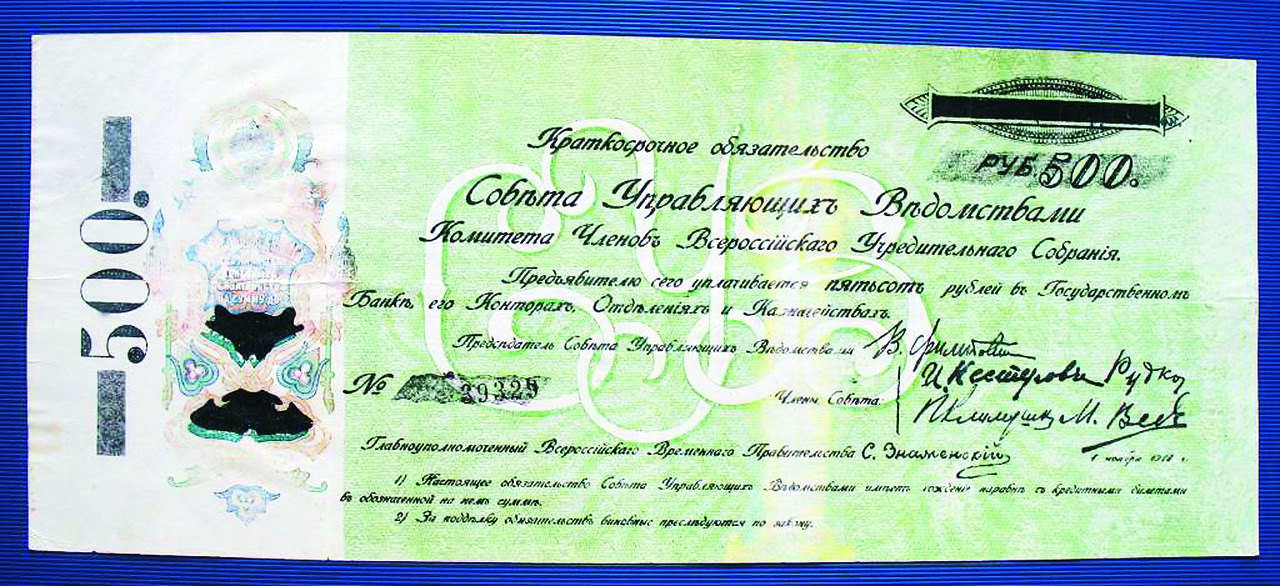 РУБ. 500.
Краткосрочное обязательство
Совѣта Управляющихъ Вѣдомствами
Комитета Членовъ Всероссійскаго Учредительнаго Собранія.
Предъявителю сего уплачивается пятьсотъ рублей въ Государственномъ
Банкѣ, его Конторахъ, Отдѣленіяхъ и Казначействахъ.
Предсѣдатель Совѣта Управляющихъ Вѣдомствами
№ 39329
Члены Совѣта:
Главноуполномоченный Всероссійскаго Временнаго Правительства С. Знаменскій
1 ноября г.
1) Настоящее обязательство Совѣта Управляющихъ Вѣдомствами имѣетъ хожденіе наравнѣ съ кредитными билетами
въ обозначенной на немъ суммѣ.
2) За поддѣлку обязательствъ виновные преслѣдуются по закону.
500.
НА СУММУ ДО